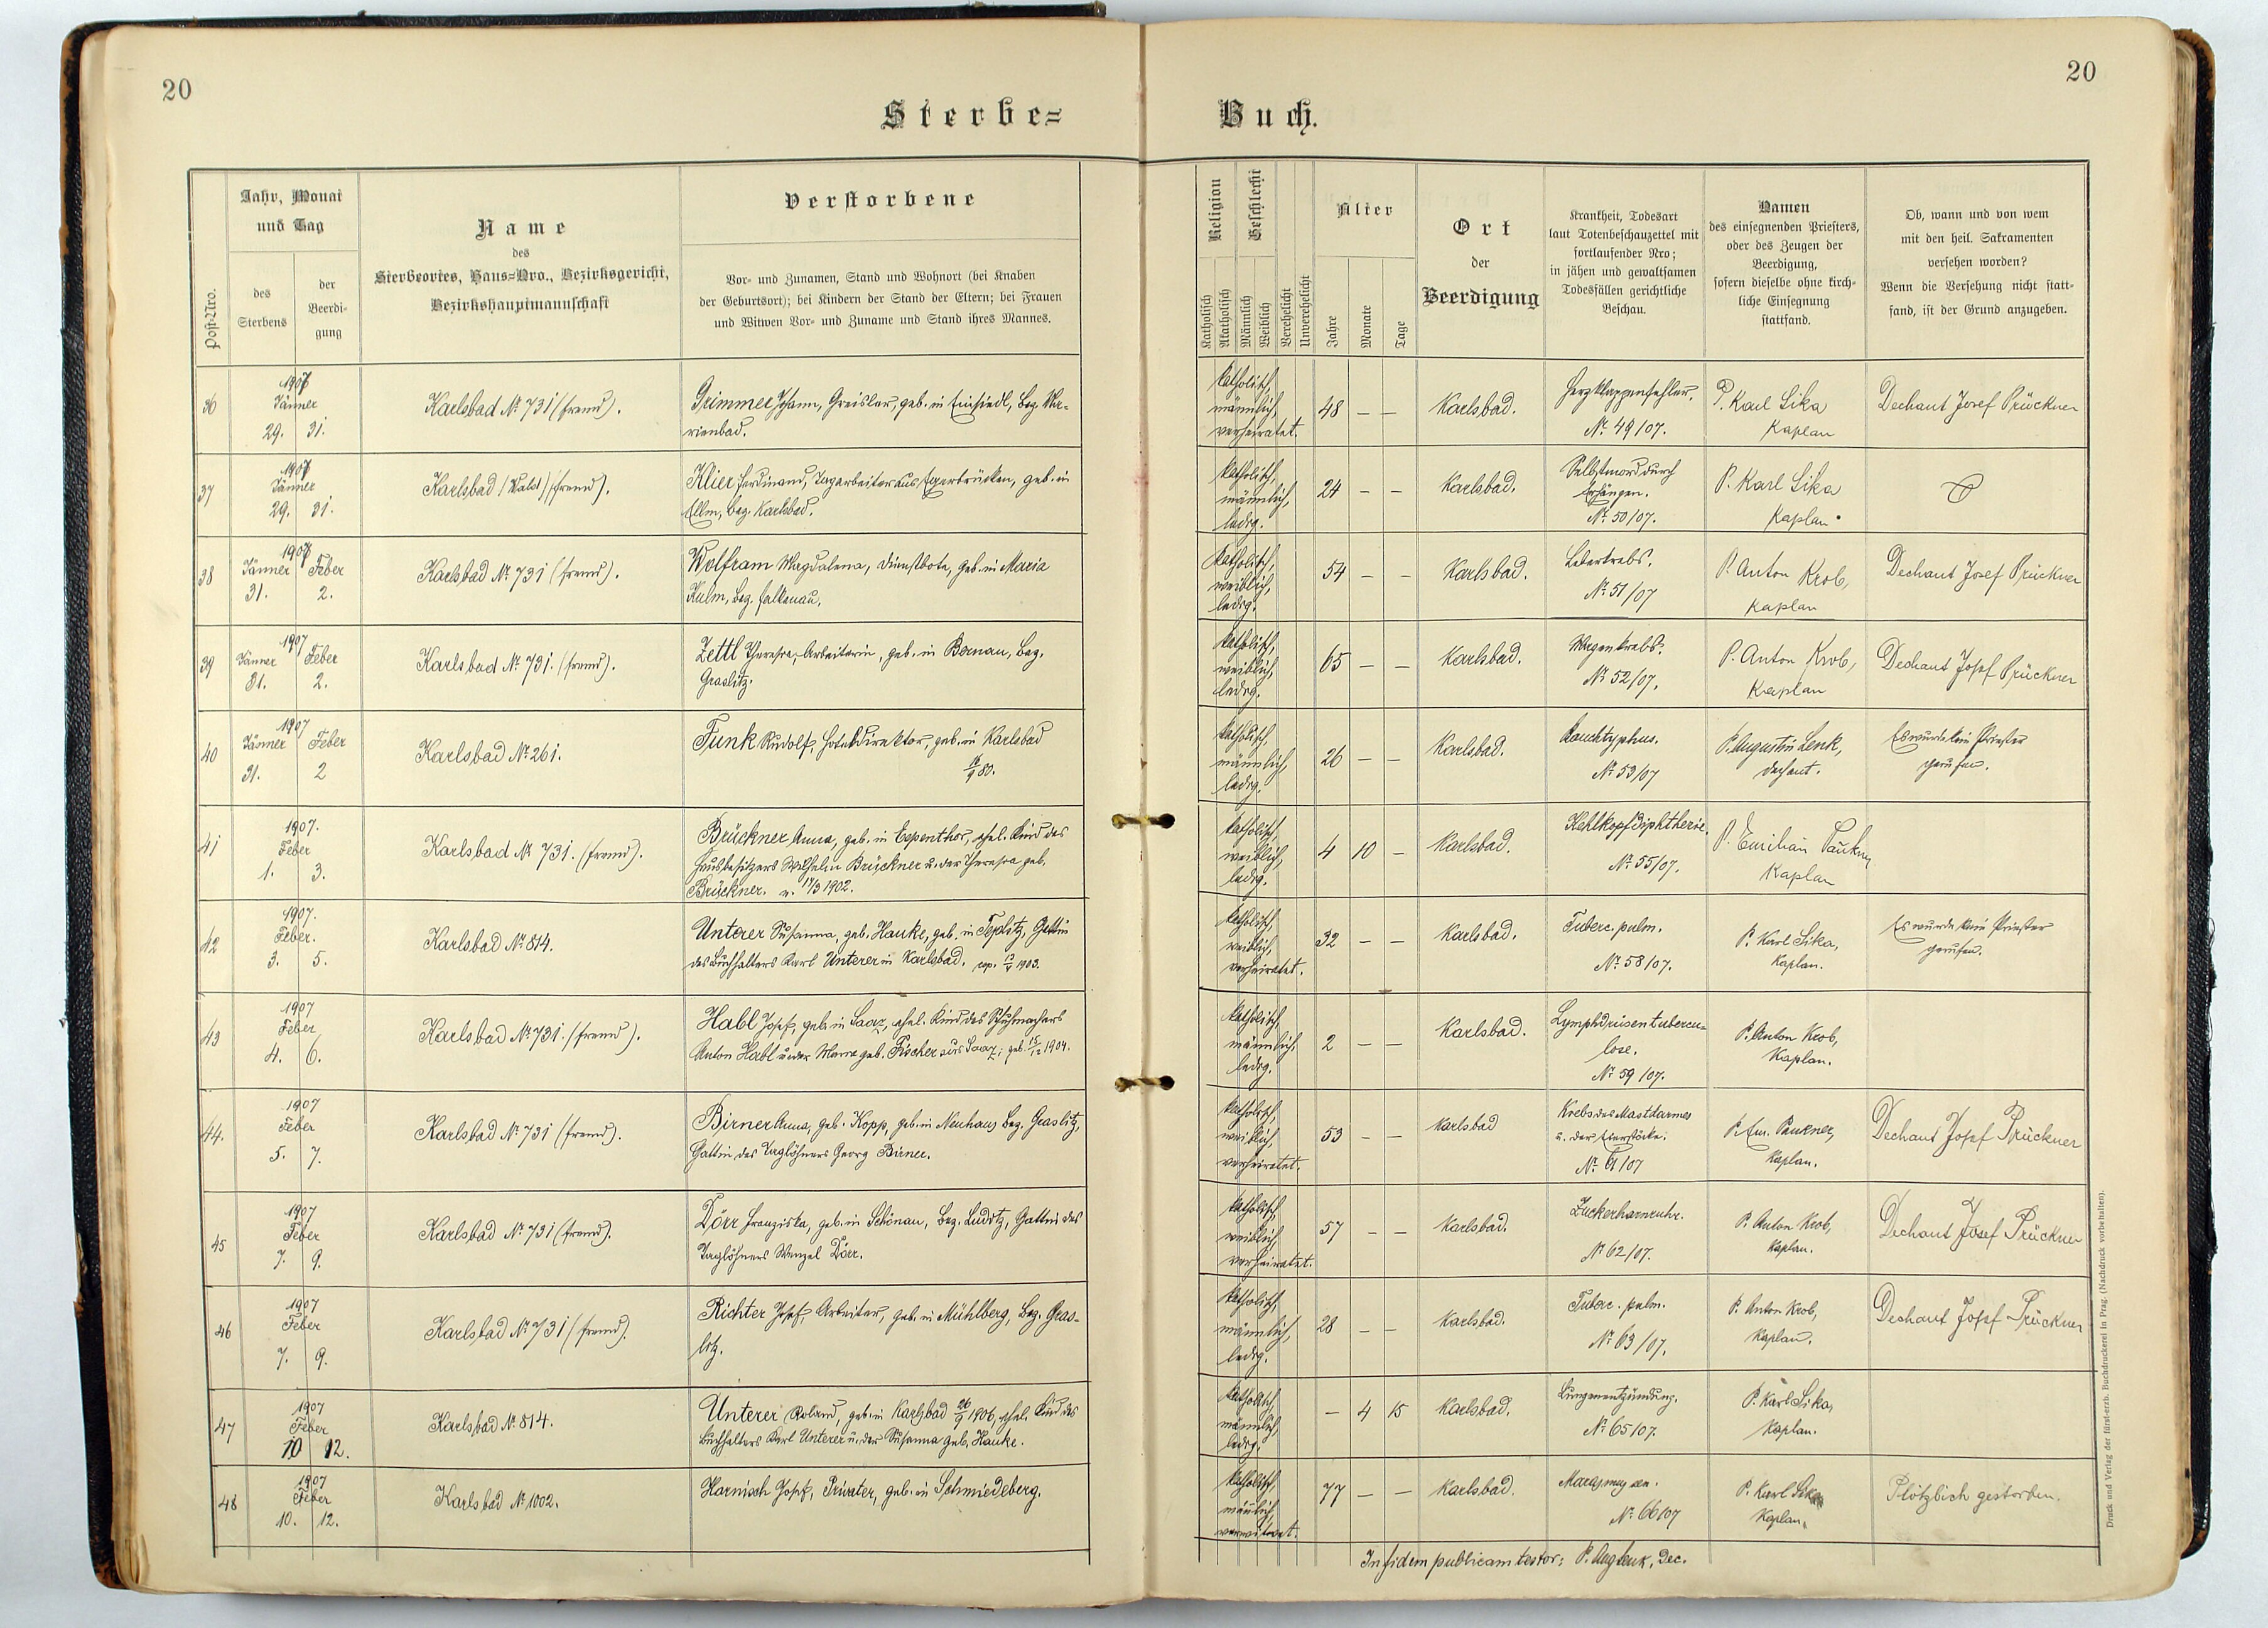 20
20
Sterbe=
Buch.
Post-Nro.
Jahr, Monat
und Tag
des
Sterbens
der
Beerdi-
gung
Name
des
Sterbeortes, Haus=Nro., Bezirksgericht,
Bezirkshauptmannschaft
Verstorbene
Vor- und Zunamen, Stand und Wohnort (bei Knaben
der Geburtsort); bei Kindern der Stand der Eltern; bei Frauen
und Witwen Vor- und Zuname und Stand ihres Mannes.
Religion
Katholisch
Akatholisch
Geschlecht
Männlich
Weiblich
Verehelicht
Unverehelicht
Alter
Jahre
Monate
Tage
Ort
der
Beerdigung
Krankheit, Todesart
laut Totenbeschauzettel mit
fortlaufender Nro;
in jähen und gewaltsamen
Todesfällen gerichtliche
Beschau.
Namen
des einsegnenden Priesters,
oder des Zeugen der
Beerdigung,
sofern dieselbe ohne kirch-
liche Einsegnung
stattfand.
Ob, wann und von wem
mit den heil. Sakramenten
versehen worden?
Wenn die Versehung nicht statt-
fand, ist der Grund anzugeben.
36
1907
Jänner
29. 31.
Karlsbad № 731 (fremd).
Grimmer Johann, Greisler, geb. in Einsiedl, Bez. Ma-
rienbad.
katholisch,
männlich,
verheiratet.
48 — —
Karlsbad.
Herzklappenfehler.
№ 49/07.
P. Karl Sika
Kaplan
Dechant Josef Prückner
37
1907
Jänner
29. 31.
Karlsbad (Wald) (fremd).
Klier Ferdinand, Tagarbeiter aus Egerbrücken, geb. in
Ellm, Bez. Karlsbad.
katholisch,
männlich,
ledig.
24 — —
Karlsbad.
Selbstmord durch
Erhängen.
№ 50/07.
P. Karl Sika
Kaplan
38
1907
Jänner Feber
31. 2.
Karlsbad № 731 (fremd).
Wolfram Magdalena, Dienstbote, geb. in Maria
Kulm, Bez. Falkenau.
katholisch,
weiblich,
ledig.
54 — —
Karlsbad.
Leberkrebs.
№ 51/07
P. Anton Krob,
Kaplan
Dechant Josef Prückner
39
1907
Jänner Feber
31. 2.
Karlsbad № 731. (fremd).
Zettl Theresia, Arbeiterin, geb. in Bernau, Bez.
Graslitz.
katholisch,
weiblich,
ledig.
65 — —
Karlsbad.
Magenkrebs.
№ 52/07.
P. Anton Krob,
Kaplan
Dechant Josef Prückner
40
1907
Jänner Feber
31. 2
Karlsbad № 261.
Funk Rudolf, Hoteldirektor, geb. in Karlsbad
80.
katholisch,
männlich,
ledig.
26 — —
Karlsbad.
Bauchtyphus.
№ 53/07
P. Augustin Lenk,
Dechant.
Es wurde kein Priester
gerufen.
41
1907.
Feber
1. 3.
Karlsbad № 731. (fremd).
Brückner Anna, geb. in Espenthor, ehel. Kind des
Hausbesitzers Wilhelm Brückner u. der Theresia geb.
Brückner. n. 17/3 1902.
katholisch,
weiblich,
ledig.
4 10 —
Karlsbad.
Kehlkopfdiphtherie.
№ 55/07.
P. Emilian Paukner
Kaplan
42
1907.
Feber.
3. 5.
Karlsbad № 814.
Unterer Susanna, geb. Hanke, geb. in Teplitz, Gattin
des Buchhalters Karl Unterer in Karlsbad. cop. 1903.
katholisch,
weiblich,
verheiratet.
32 — —
Karlsbad.
Tuberc. pulm.
№ 58/07.
P. Karl Sika,
Kaplan.
Es wurde kein Priester
gerufen.
43
1907
Feber
4. 6.
Karlsbad № 731. (fremd).
Habl Josef, geb. in Saaz, ehel. Kind des Schuhmachers
Anton Habl u. der Marie geb. Fischer aus Saaz; geb. 15/12 1904.
katholisch,
männlich,
ledig.
2 — —
Karlsbad.
Lymphdrüsentubercu-
lose.
№ 59/07.
P. Anton Krob,
Kaplan.
44.
1907
Feber
5. 7.
Karlsbad № 731 (fremd).
Birner Anna, geb. Kopp, geb. in Neuhaus Bez. Graslitz,
Gattin des Taglöhners Georg Birner.
katholisch,
weiblich,
verheiratet.
53 — —
Karlsbad
Krebs des Mastdarmes
u. der Eierstöcke.
№ 61/07
P. Em. Paukner,
Kaplan.
Dechant Josef Prückner
45
1907
Feber
7. 9.
Karlsbad № 731 (fremd).
Dörr Franziska, geb. in Schönau, Bez. Luditz, Gattin des
Taglöhners Wenzel Dörr.
katholisch,
weiblich
verheiratet.
57 — —
Karlsbad.
Zuckerharnruhr.
№ 62/07.
P. Anton Krob,
Kaplan.
Dechant Josef Prückner
46
1907
Feber
7. 9.
Karlsbad № 731 (fremd).
Richter Josef, Arbeiter, geb. in Mühlberg, Bez. Gras-
litz.
katholisch,
männlich,
ledig.
28 — —
Karlsbad.
Tuberc. pulm.
№ 63/07.
P. Anton Krob,
Kaplan.
Dechant Josef Prückner
47
1907
Feber
10 12.
Karlsbad № 814.
Unterer Roland, geb. in Karlsbad 26/9 1906, ehel. Kind des
Buchhalters Karl Unterer u. der Susanna geb. Hanke.
katholisch,
männlich,
ledig.
— 4 15
Karlsbad.
Lungenentzündung.
№ 65/07.
P. Karl Sika,
Kaplan.
48
1907
Feber
10. 12.
Karlsbad № 1002.
Harnisch Josef, Privater, geb. in Schmiedeberg.
katholisch,
männlich,
verwitwet.
77 — —
Karlsbad.
Marasmus sen.
№ 66/07
P. Karl Sika
Kaplan.
Plötzlich gestorben.
In fidem publicam testor: P. Aug Lenk, Dec.
Druck und Verlag der fürst-erzb. Buchdruckerei in Prag. (Nachdruck vorbehalten).